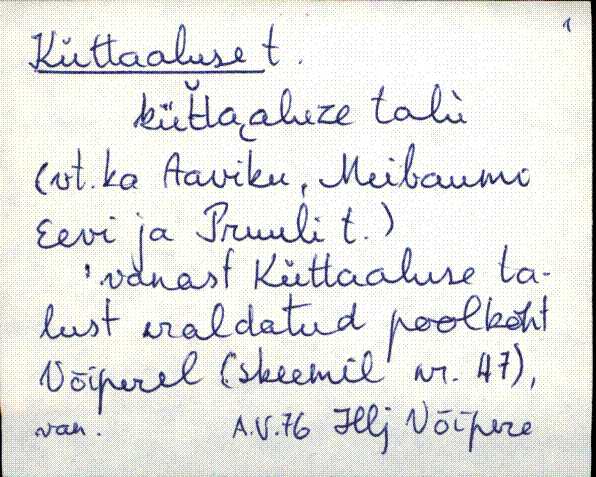 1
Küttaaluse t.
küt̆taaluze talù
(vt. ka Aaviku, Meibaumi
Eevi ja Pruuli t.)
vanast Küttaaluse ta-
lust eraldatud poolkoht
Võiperel (skeemil nr. 47),
van. A.V.76 Hlj Võipere